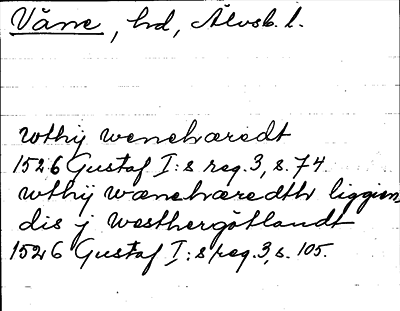 Väne, hd, Älvsb. l.
wthij wenehæredt
1526 Gustaf I:s reg. 3, s. 74.
wthij wænehæredth liggien
dis j westhergötlandt
1526 Gustaf I:s reg. 3, s. 105.